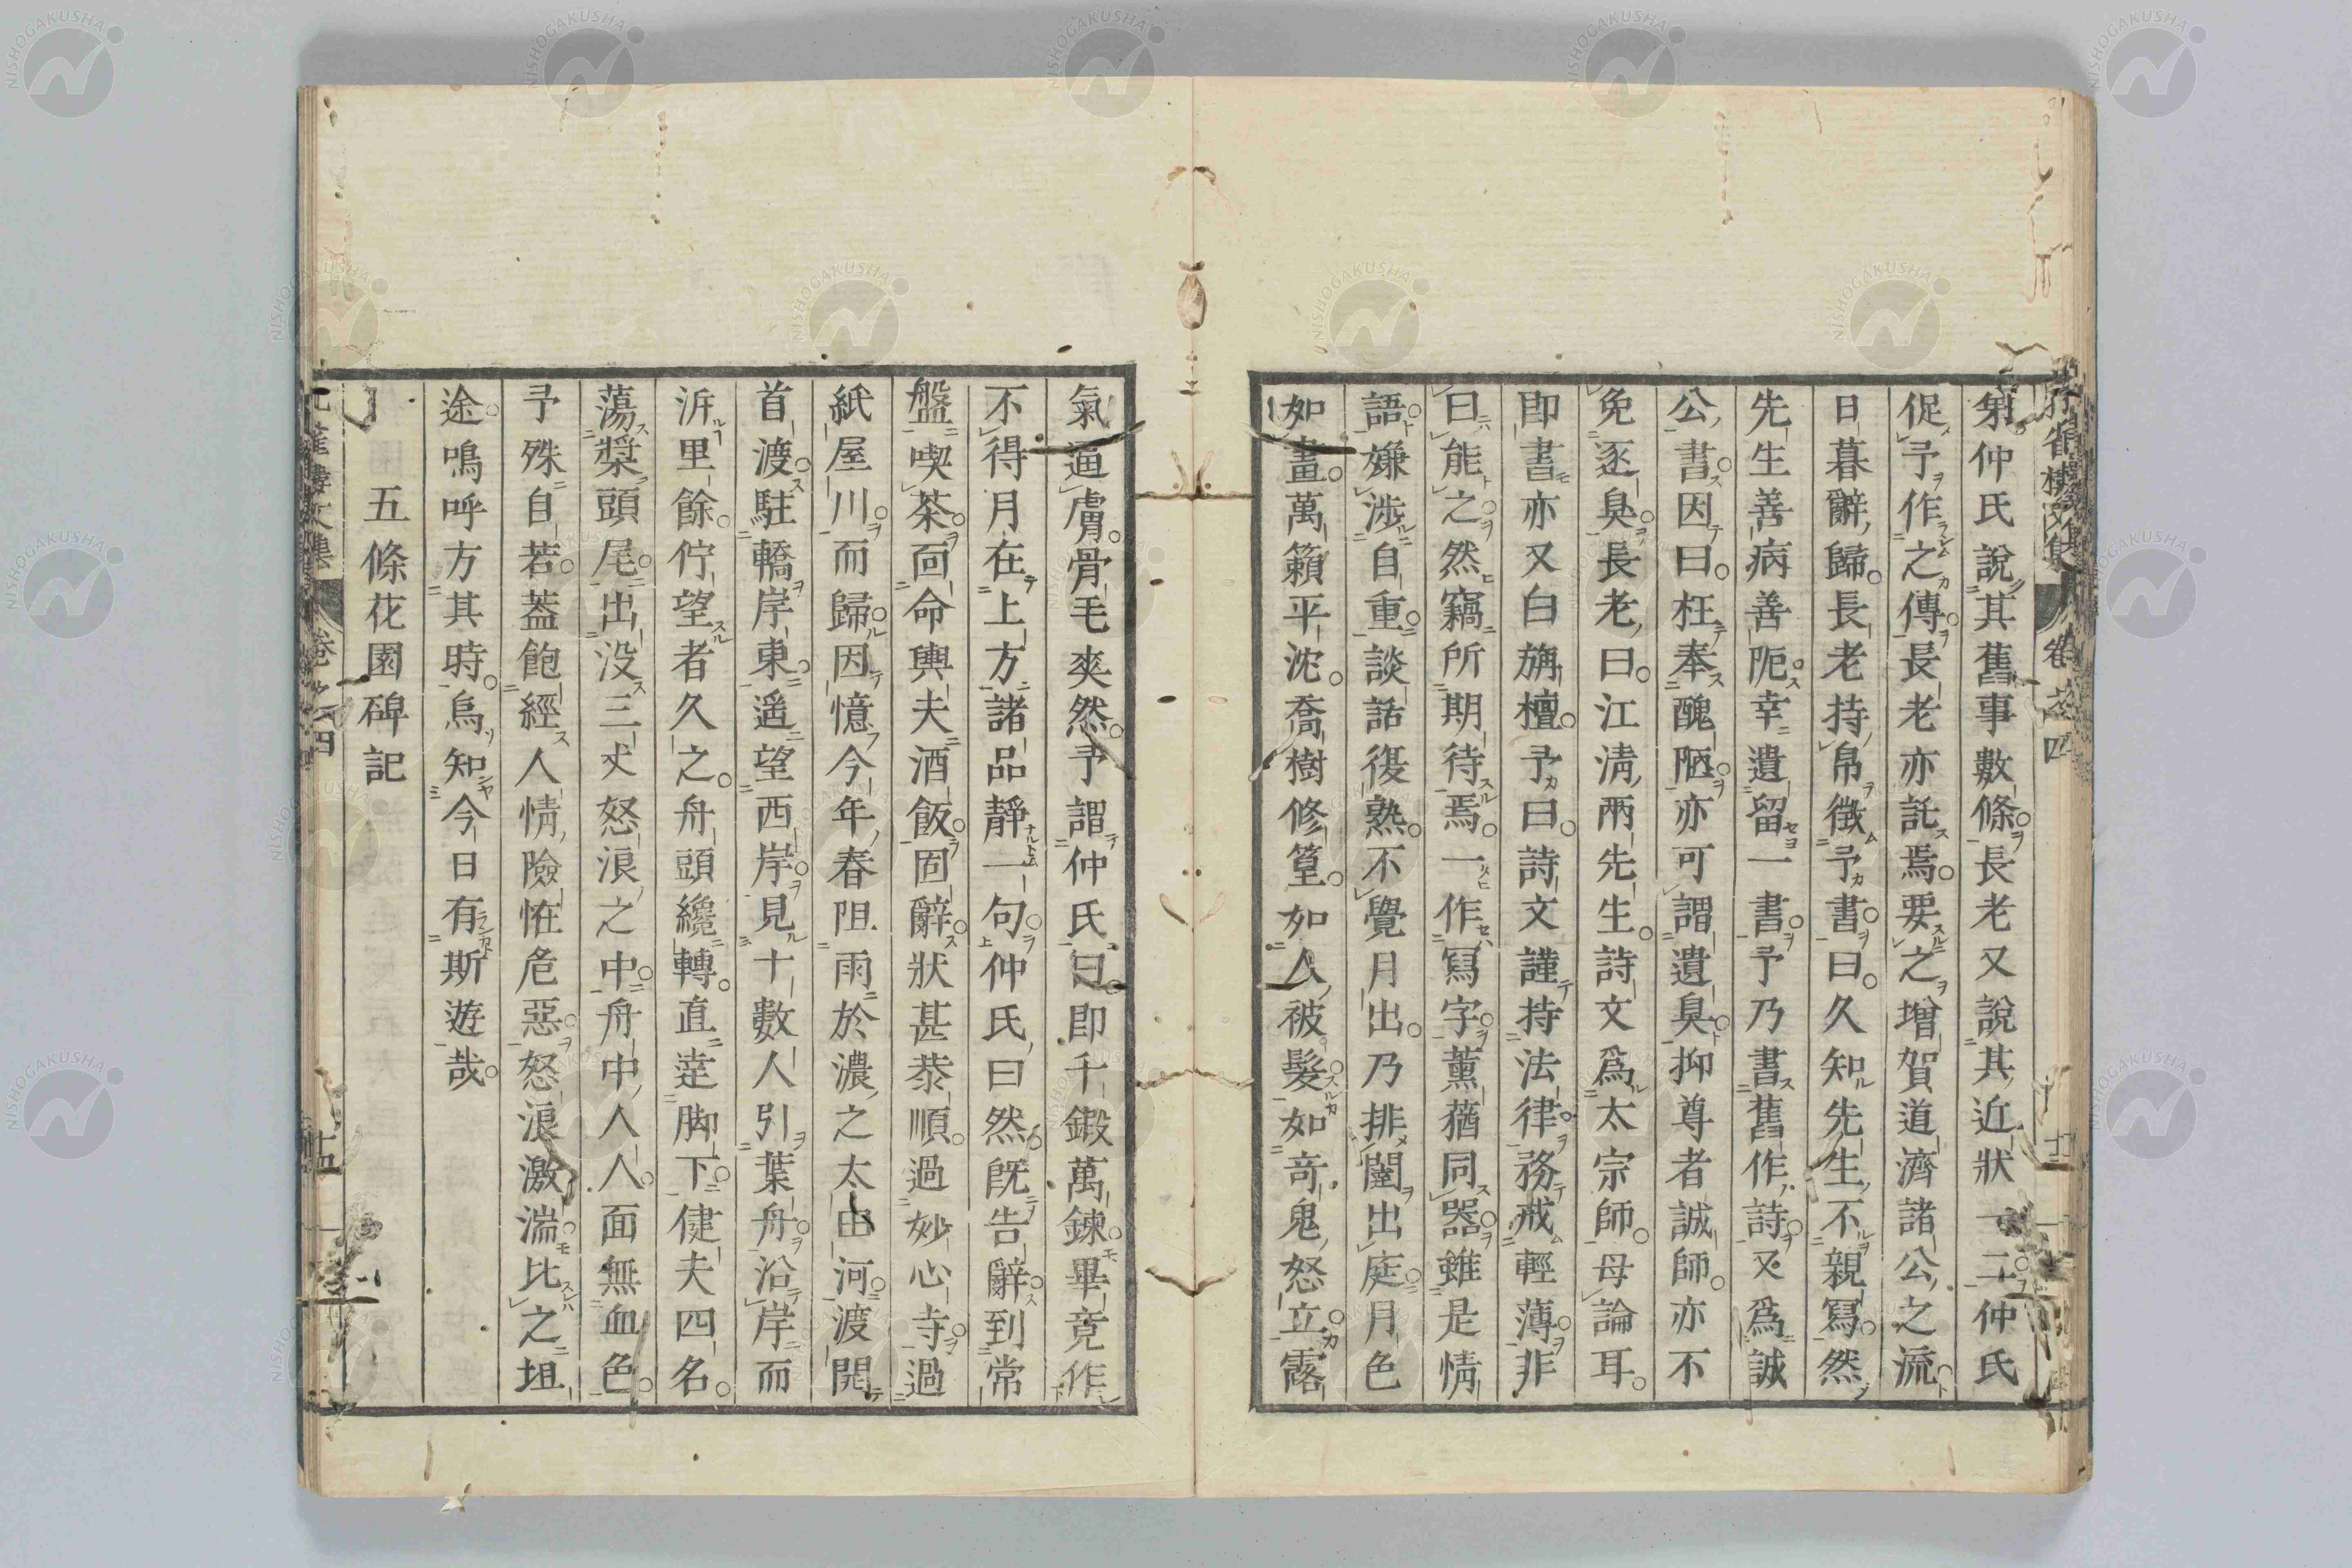 弟仲氏說其舊事數條長老又說其近狀一二仲氏
促予作之傳長老亦託焉要之增賀道濟諸公之流
日暮辭歸長老持帛徵予書曰久知先生不親寫然
先生善病善阨幸遺留一書予乃書舊作詩又爲誠
公書因曰枉奉醜陋亦可謂遺臭抑尊者誠師亦不
免逐臭長老曰江淸兩先生詩文爲太宗師母論耳
即書亦又白旃檀予曰詩文謹持法律務戒輕薄非
曰能之然竊所期待焉一作寫字薰蕕同器雖是情
語嫌涉自重談話復熟不覺月出乃排闥出庭月色
如晝萬籟平沈喬樹修篁如人被髮如奇鬼怒立露
氣逼膚骨毛爽然予謂仲氏曰即千鍛萬鍊畢竟作
不得月在上方諸品靜一句仲氏曰然既告辭到常
盤喫茶回命輿夫酒飯固辭狀甚恭順過妙心寺過
紙屋川而歸因憶今年春阻雨於濃之太田河渡開
首渡駐轎岸東遥望西岸見十數人引葉舟沿岸而
泝里餘佇望者久之舟頭纔轉直逹脚下健夫四名
蕩槳頭尾出没三丈怒浪之中舟中人人面無血色
予殊自若蓋飽經人情險恠危惡怒浪激湍比之坦
途嗚呼方其時烏知今日有斯遊哉
五條花園碑記
樓文集 卷之四
卷之四